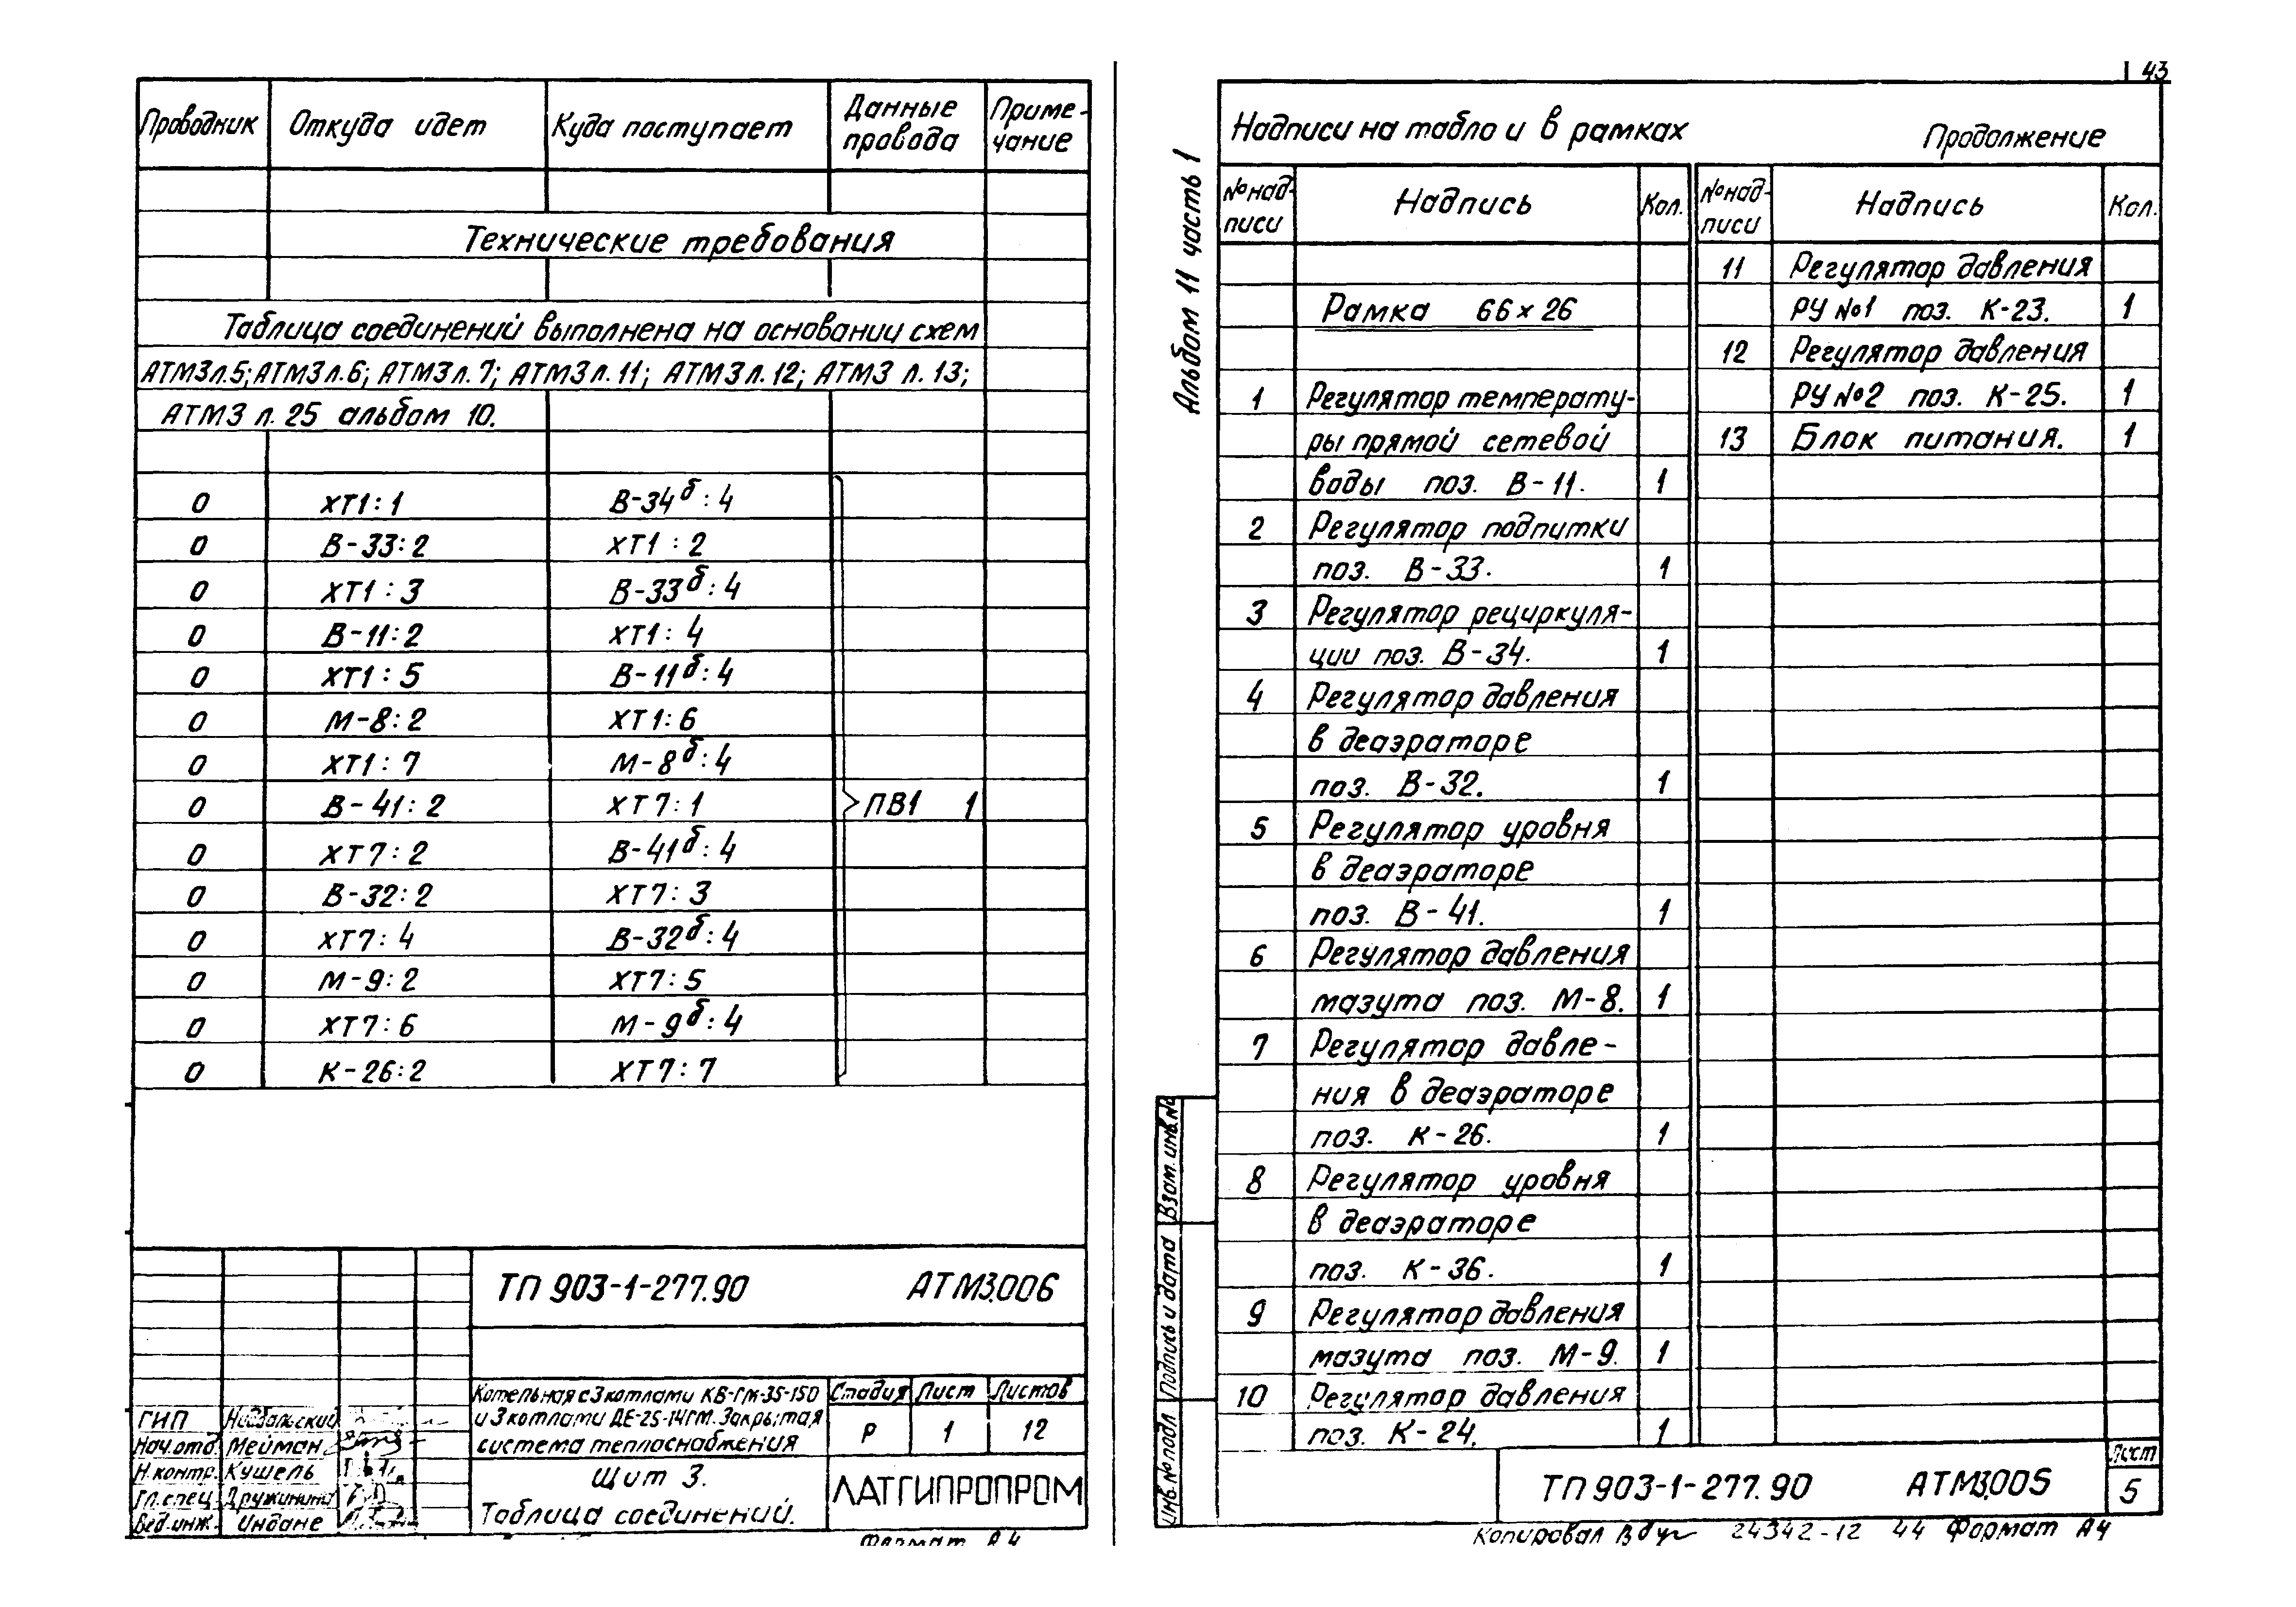 Проводник Откуда идет Куда поступает Данные провода Приме-чание
Технические требования
Таблица соединений выполнена на основании схем
АТМ3л.5; АТМ3л.6; АТМ3л.7; АТМ3л.11; АТМ3л.12; АТМ3 л.13;
АТМ3 л.25 альбом 10.
0 ХТ1:1 В-34б:4
0 В-33:2 ХТ1:2
0 ХТ1:3 В-33б:4
0 В-11:2 ХТ1:4
0 ХТ1:5 В-11б:4
0 М-8:2 ХТ1:6
0 ХТ1:7 М-8б:4
0 В-41:2 ХТ7:1 ПВ1 1
0 ХТ7:2 В-41б:4
0 В-32:2 ХТ7:3
0 ХТ7:4 В-32б:4
0 М-9:2 ХТ7:5
0 ХТ7:6 М-9б:4
0 К-26:2 ХТ7:7
ТП 903-1-277.90 АТМ3.006
Котельная с 3 котлами КВ-ГМ-35-150
и 3 котлами ДЕ-25-14ГМ. Закрытая
система теплоснабжения
Стадия Лист Листов
Р 1 12
ГИП
Нач.отд. Мейман
Н.контр. Кушель
Гл.спец. Дружинина
Вед.инж. Индане
Щит 3.
Таблица соединений.
ЛАТГИПРОПРОМ
Формат А4
43
Альбом 11 часть 1
Надписи на табло и в рамках Продолжение
№ над-писи Надпись Кол. № над-писи Надпись Кол.
Рамка 66×26
1 Регулятор температу-
ры прямой сетевой
воды поз. В-11. 1
2 Регулятор подпитки
поз. В-33. 1
3 Регулятор рециркуля-
ции поз. В-34. 1
4 Регулятор давления
в деаэраторе
поз. В-32. 1
5 Регулятор уровня
в деаэраторе
поз. В-41. 1
6 Регулятор давления
мазута поз. М-8. 1
7 Регулятор давле-
ния в деаэраторе
поз. К-26. 1
8 Регулятор уровня
в деаэраторе
поз. К-36. 1
9 Регулятор давления
мазута поз. М-9. 1
10 Регулятор давления
поз. К-24. 1
11 Регулятор давления
РУ №1 поз. К-23. 1
12 Регулятор давления
РУ №2 поз. К-25. 1
13 Блок питания. 1
Взам. инв.№
Подпись и дата
Инв.№ подл.
ТП 903-1-277.90 АТМ3.005
Лист
5
Копировал 24342-12 44 Формат А4